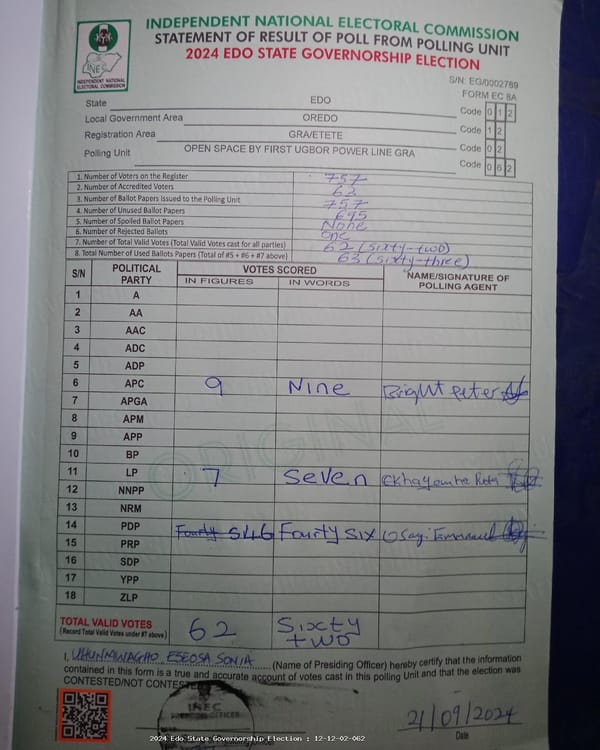 INDEPENDENT NATIONAL ELECTORAL COMMISSION
STATEMENT OF RESULT OF POLL FROM POLLING UNIT
2024 EDO STATE GOVERNORSHIP ELECTION
INEC
INDEPENDENT NATIONAL ELECTORAL COMMISSION
S/N: EG/0002789
FORM EC 8A
State EDO Code 0 1 2
Local Government Area OREDO Code 1 2
Registration Area GRA/ETETE Code 0 2
Polling Unit OPEN SPACE BY FIRST UGBOR POWER LINE GRA Code 0 6 2
1. Number of Voters on the Register 757
2. Number of Accredited Voters 62
3. Number of Ballot Papers Issued to the Polling Unit 757
4. Number of Unused Ballot Papers 695
5. Number of Spoiled Ballot Papers None
6. Number of Rejected Ballots One
7. Number of Total Valid Votes (Total Valid Votes cast for all parties) 62 (sixty-two)
8. Total Number of Used Ballots Papers (Total of #5 + #6 + #7 above) 63 (sixty-three)
S/N POLITICAL PARTY VOTES SCORED NAME/SIGNATURE OF POLLING AGENT
IN FIGURES IN WORDS
1 A
2 AA
3 AAC
4 ADC
5 ADP
6 APC 9 Nine Bright Peter
7 APGA
8 APM
9 APP
10 BP
ORIGINAL
11 LP 7 Seven
12 NNPP
13 NRM
14 PDP Fourty 46 Fourty six Osagi Emmanuel
15 PRP
16 SDP
17 YPP
18 ZLP
TOTAL VALID VOTES 62 Sixty two
(Record Total Valid Votes under #7 above)
I, UHUNMWAGHO ESEOSA SONIA (Name of Presiding Officer) hereby certify that the information
contained in this form is a true and accurate account of votes cast in this polling Unit and that the election was
CONTESTED/NOT CONTESTED
INEC
21/09/2024
Date
2024 Edo State Governorship Election : 12-12-02-062